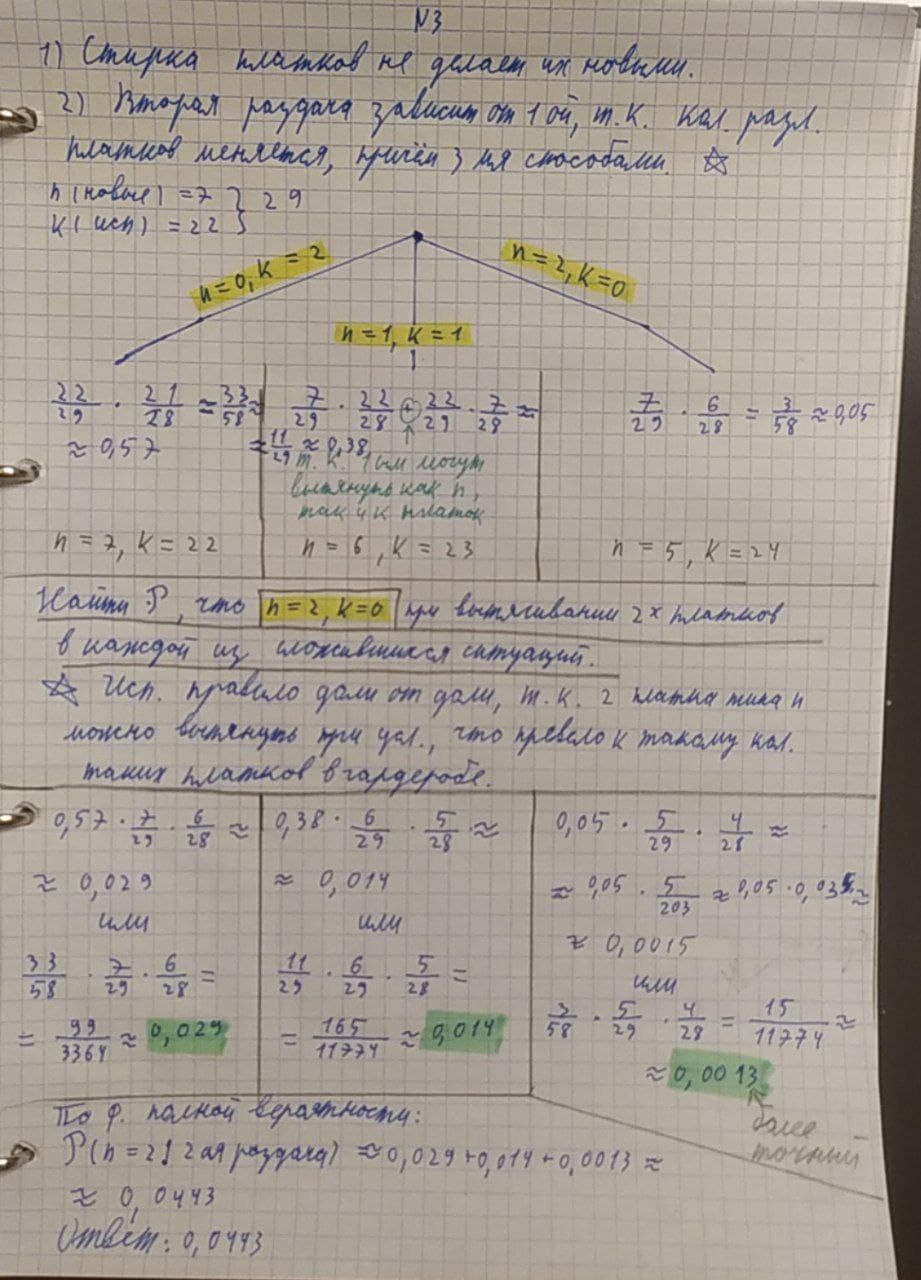 N3
1) Стирка платков не делает их новыми.
2) Вторая раздача зависит от 1 ой, т.к. кол. разл.
платков меняется, причём 3 мя способами. ☆
n (новые) = 7 } 29
k (исп) = 22 }
n = 0, k = 2
n = 1, k = 1
n = 2, k = 0
22/29 · 21/28 ≈ 33/58 ≈
≈ 0,57
7/29 · 22/28 + 22/29 · 7/28 ≈
≈ 11/29 ≈ 0,38
т.к. 1 ым могут
вытянуть как n,
так и k платок
7/29 · 6/28 = 3/58 ≈ 0,05
n = 7, k = 22
n = 6, k = 23
n = 5, k = 24
Найти P, что n = 2, k = 0 при вытягивании 2х платков
в каждой из сложившихся ситуаций.
☆ Исп. правило доли от доли, т.к. 2 платка типа n
можно вытянуть при усл., что превело к такому кол.
таких платков в гардеробе.
0,57 · 7/29 · 6/28 ≈
≈ 0,029
или
33/58 · 7/29 · 6/28 =
= 99/3364 ≈ 0,029
0,38 · 6/29 · 5/28 ≈
≈ 0,014
или
11/29 · 6/29 · 5/28 =
= 165/11774 ≈ 0,014
0,05 · 5/29 · 4/28 ≈
≈ 0,05 · 5/203 ≈ 0,05 · 0,03 ≈
≈ 0,0015
или
3/58 · 5/29 · 4/28 = 15/11774 ≈
≈ 0,0013
более
точный
По ф. полной вероятности:
P(n = 2 | 2 ая раздача) ≈ 0,029 + 0,014 + 0,0013 ≈
≈ 0,0443
Ответ: 0,0443